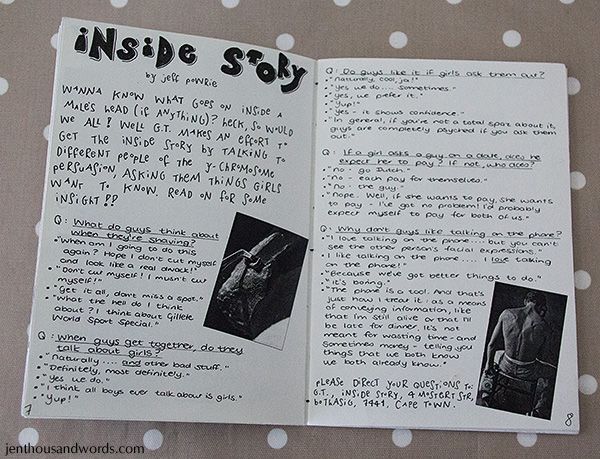 INSIDE STORY
by Jeff Powrie
WANNA KNOW WHAT GOES ON INSIDE A
MALE'S HEAD (if ANYTHING)? HECK, SO WOULD
WE ALL! WELL G.T. MAKES AN EFFORT TO
GET THE INSIDE STORY BY TALKING TO
DIFFERENT PEOPLE OF THE Y-CHROMOSOME
PERSUASION, ASKING THEM THINGS GIRLS
WANT TO KNOW. READ ON FOR SOME
INSIGHT!!
Q: What do guys think about
when they're shaving?
• "When am I going to do this
again? Hope I don't cut myself
and look like a real dwack!"
• "Don't cut myself! I musn't cut
myself!"
• "Get it all, don't miss a spot."
• "What the hell do I think
about? I think about Gillette
World Sport Special."
Q: When guys get together, do they
talk about girls?
• "Naturally.... and other bad stuff."
• "Definitely, most definitely."
• "Yes we do."
• "I think all boys ever talk about is girls."
• "Yup!"
7
Q: Do guys like it if girls ask them out?
• "Naturally, cool, ja!"
• "Yes we do.... sometimes."
• "Yes, we prefer it."
• "Yup!"
• "Yes - it shows confidence."
• "In general, if you're not a total spaz about it,
guys are completely psyched if you ask them
out."
Q: If a girl asks a guy on a date, does he
expect her to pay? If not, who does?
• "No - go Dutch."
• "No - each pay for themselves."
• "No - the guy."
• "Nope. Well, if she wants to pay, she wants
to pay - I've got no problem! I'd probably
expect myself to pay for both of us."
Q: Why don't guys like talking on the phone?
• "I love talking on the phone.... but you can't
see the other person's facial expressions."
• "I like talking on the phone..... I love talking
on the phone!"
• "Because we've got better things to do."
• "It's boring."
• "The phone is a tool. And that's
just how I treat it: as a means
of conveying information, like
that I'm still alive or that I'll
be late for dinner. It's not
meant for wasting time - and
sometimes money - telling you
things that we both know
we both already know."
PLEASE DIRECT YOUR QUESTIONS TO:
G.T., INSIDE STORY, 4 MOSTERT STR,
BOTHASIG, 7441, CAPE TOWN.
8
jenthousandwords.com